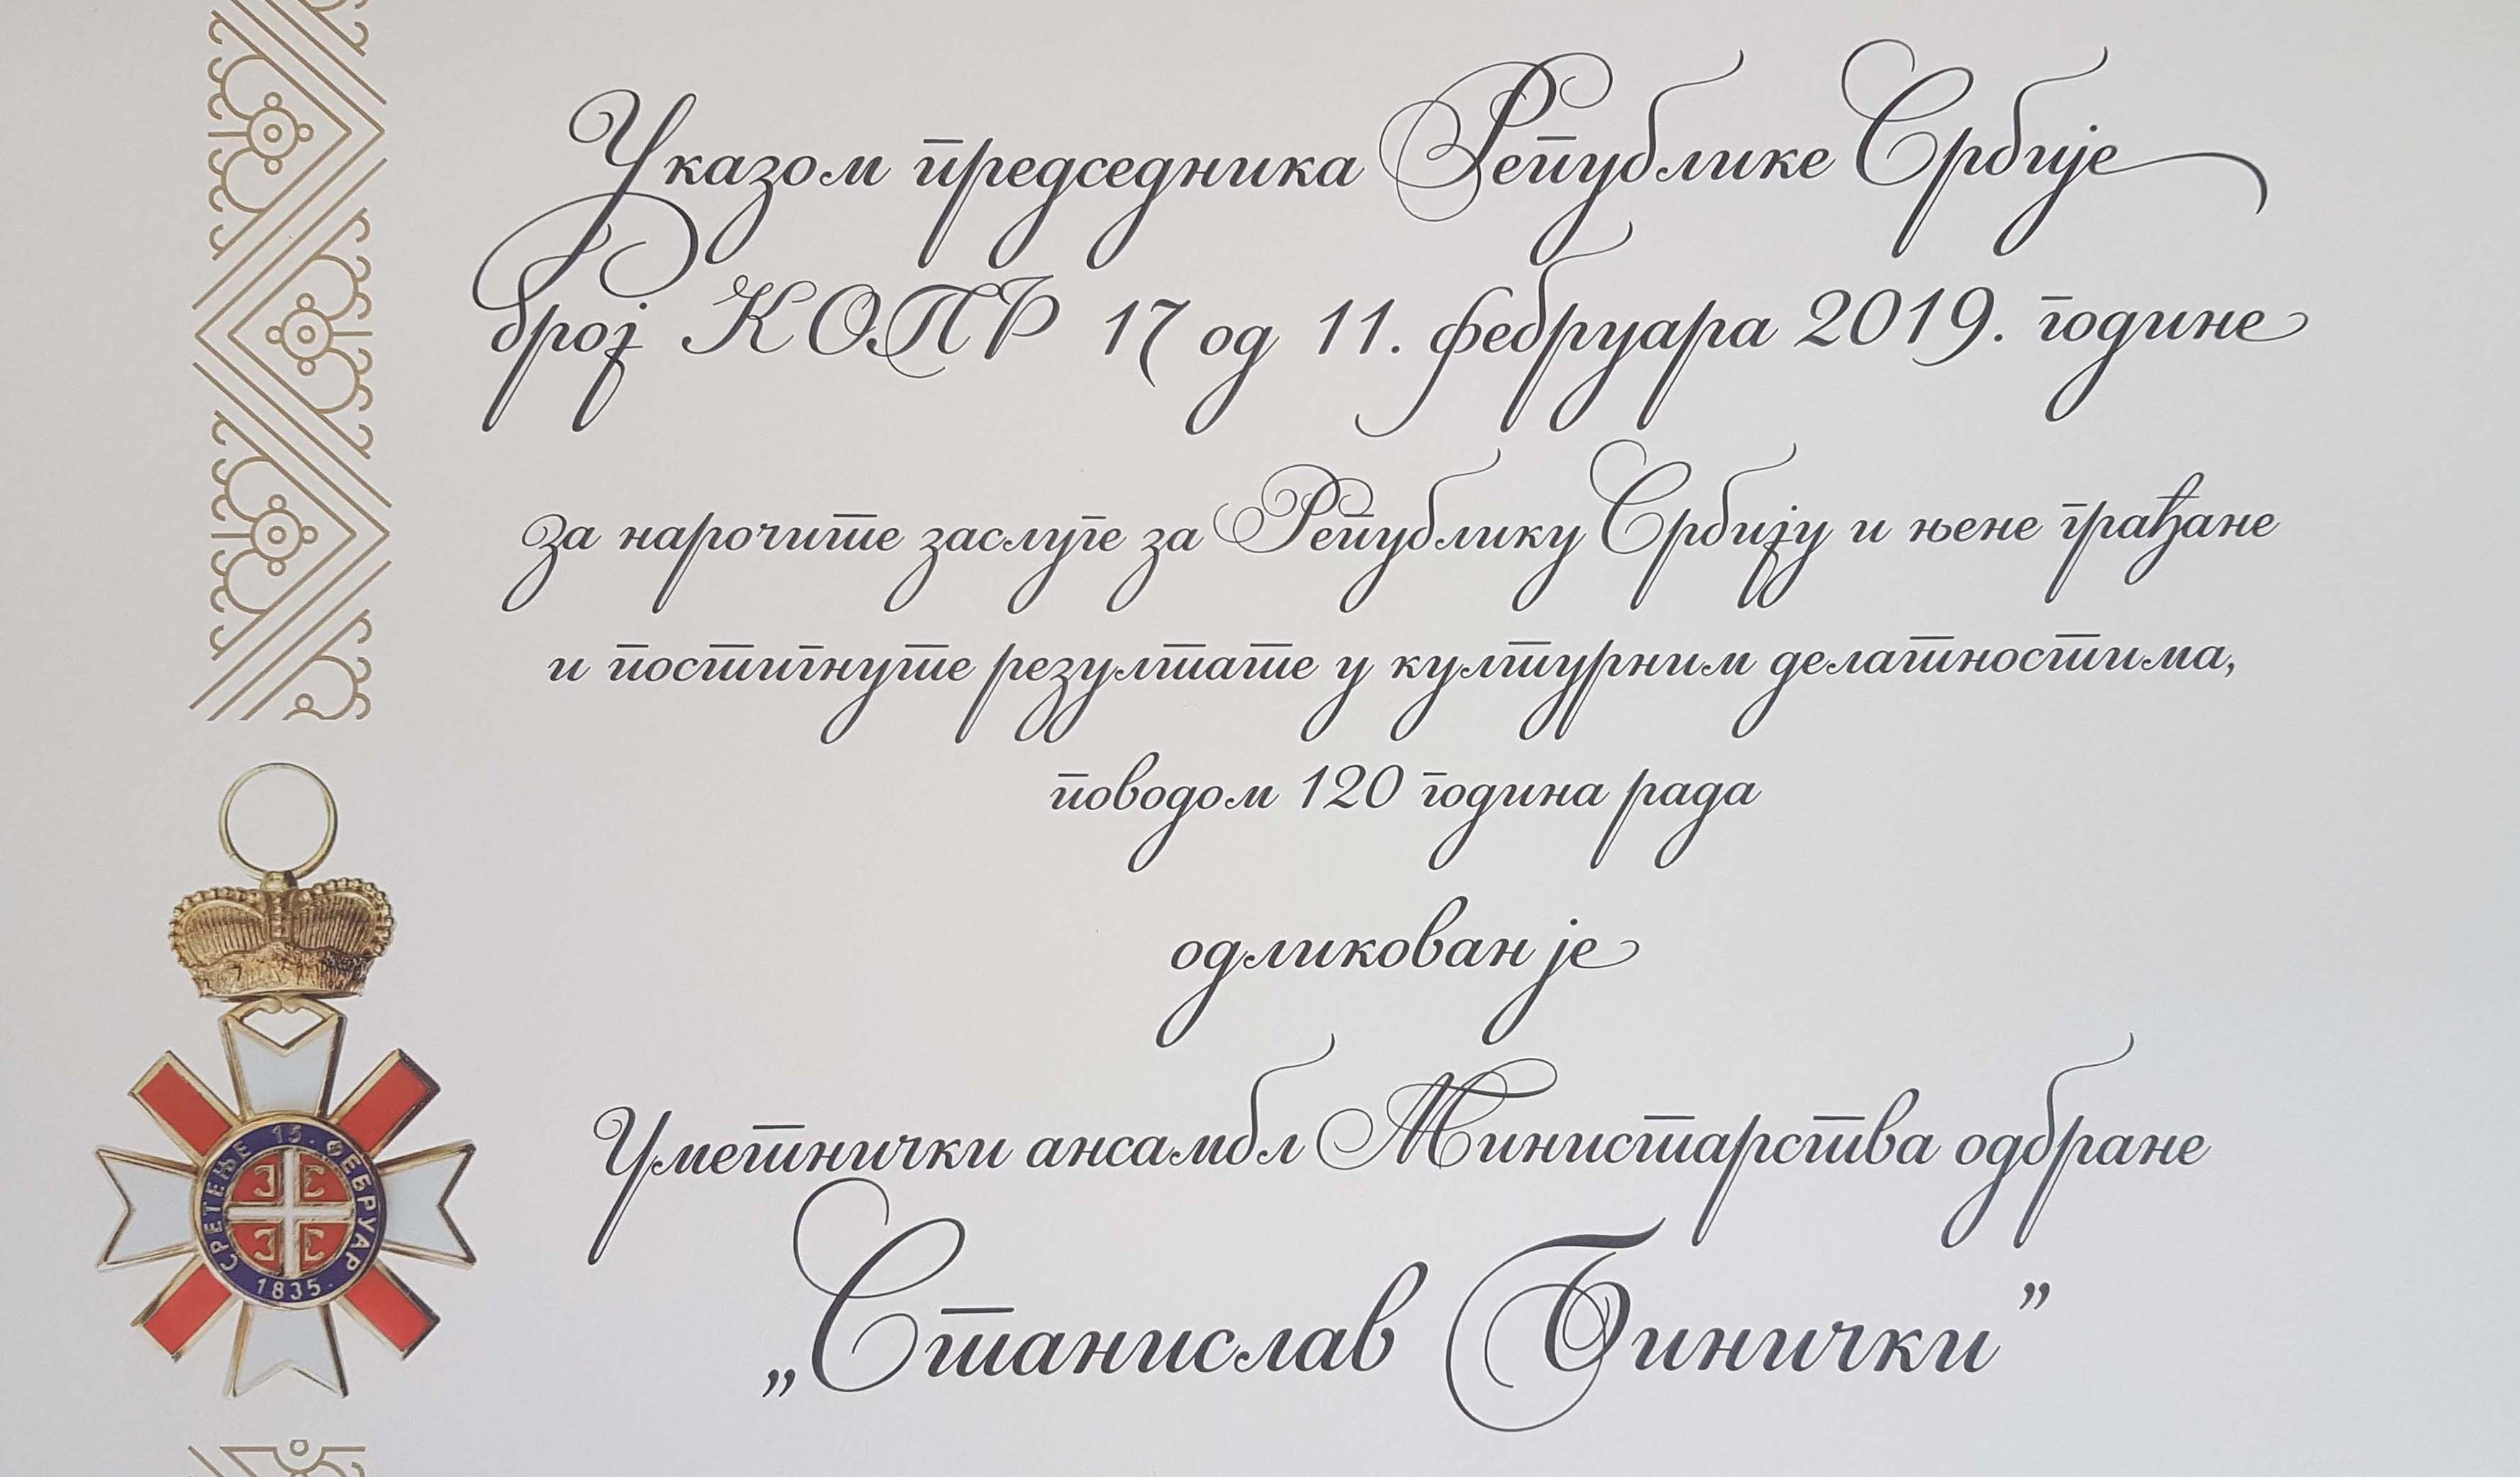 Указом председника Републике Србије
број КОПР 17 од 11. фебруара 2019. године
за нарочите заслуге за Републику Србију и њене грађане
и постигнуте резултате у културним делатностима,
поводом 120 година рада
одликован је
Уметнички ансамбл Министарства одбране
„Станислав Бинички”
СРЕТЕЊЕ 15. ФЕБРУАР
1835.